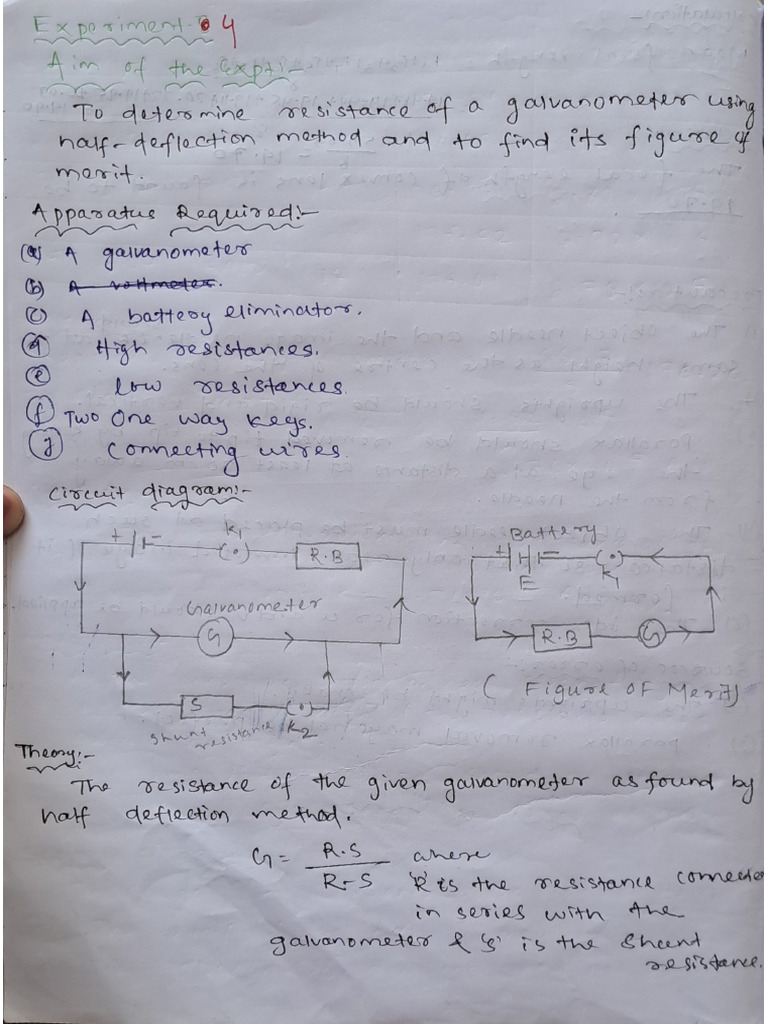 Experiment - 4
Aim of the Expt:-
To determine resistance of a galvanometer using
half-deflection method and to find its figure of
merit.
Apparatus Required:-
(a) A galvanometer
(b) A voltmeter.
(c) A battery eliminator.
(d) High resistances.
(e) low resistances.
(f) Two One way keys.
(g) Connecting wires.
Circuit diagram:-
+ - K1 R.B
Galvanometer
G
S K2
Shunt resistance
Battery
+ E K1
R.B G
( Figure OF Merit)
Theory:-
The resistance of the given galvanometer as found by
half deflection method.
G = R.S / R-S where
'R' is the resistance connected
in series with the
galvanometer & 'S' is the Shunt
resistance.